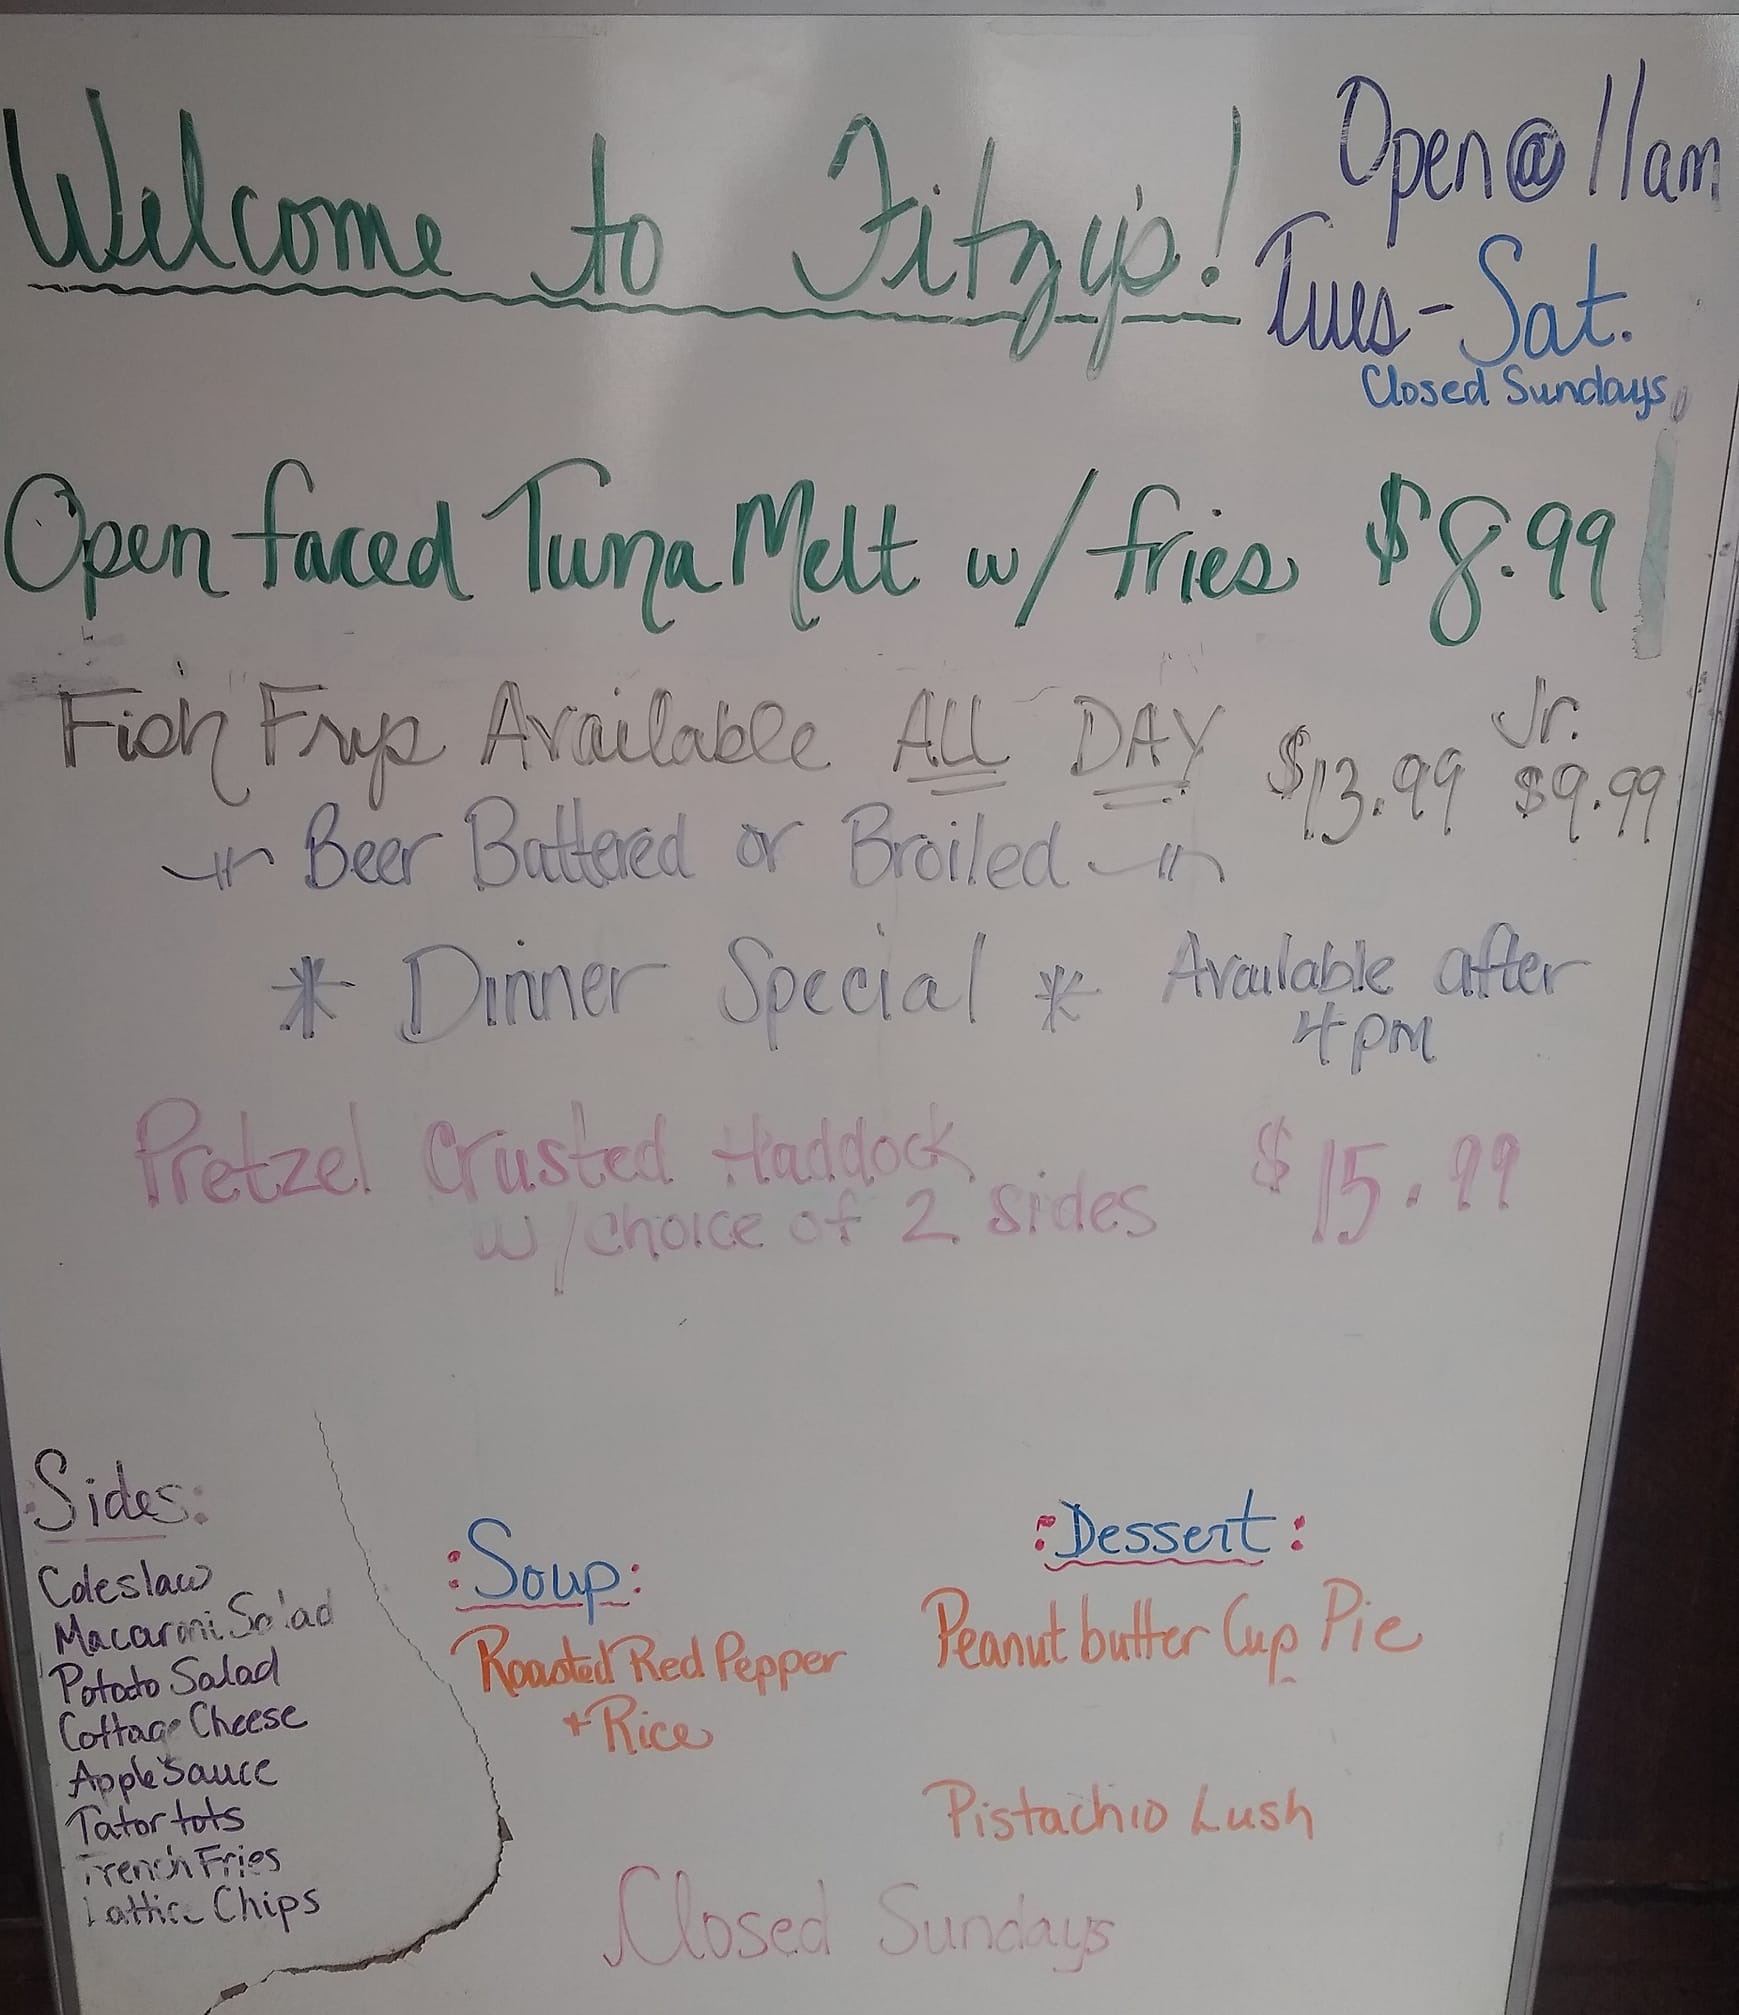 Welcome to Fitzy's!
Open @ 11am
Tues - Sat.
Closed Sundays
Open faced Tuna Melt w/ fries $8.99
Fish Frys Available ALL DAY $13.99 Jr. $9.99
Beer Battered or Broiled
* Dinner Special * Available after
4pm
Pretzel Crusted Haddock
w/ choice of 2 sides $15.99
Sides:
Coleslaw
Macaroni Salad
Potato Salad
Cottage Cheese
Apple Sauce
Tator tots
French Fries
Lattice Chips
:Soup:
Roasted Red Pepper
+ Rice
:Dessert:
Peanut butter Cup Pie
Pistachio Lush
Closed Sundays